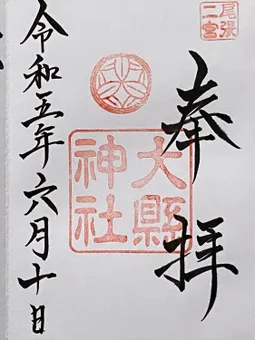 尾張
二宮
奉拝
大縣
神社
令和五年六月十日